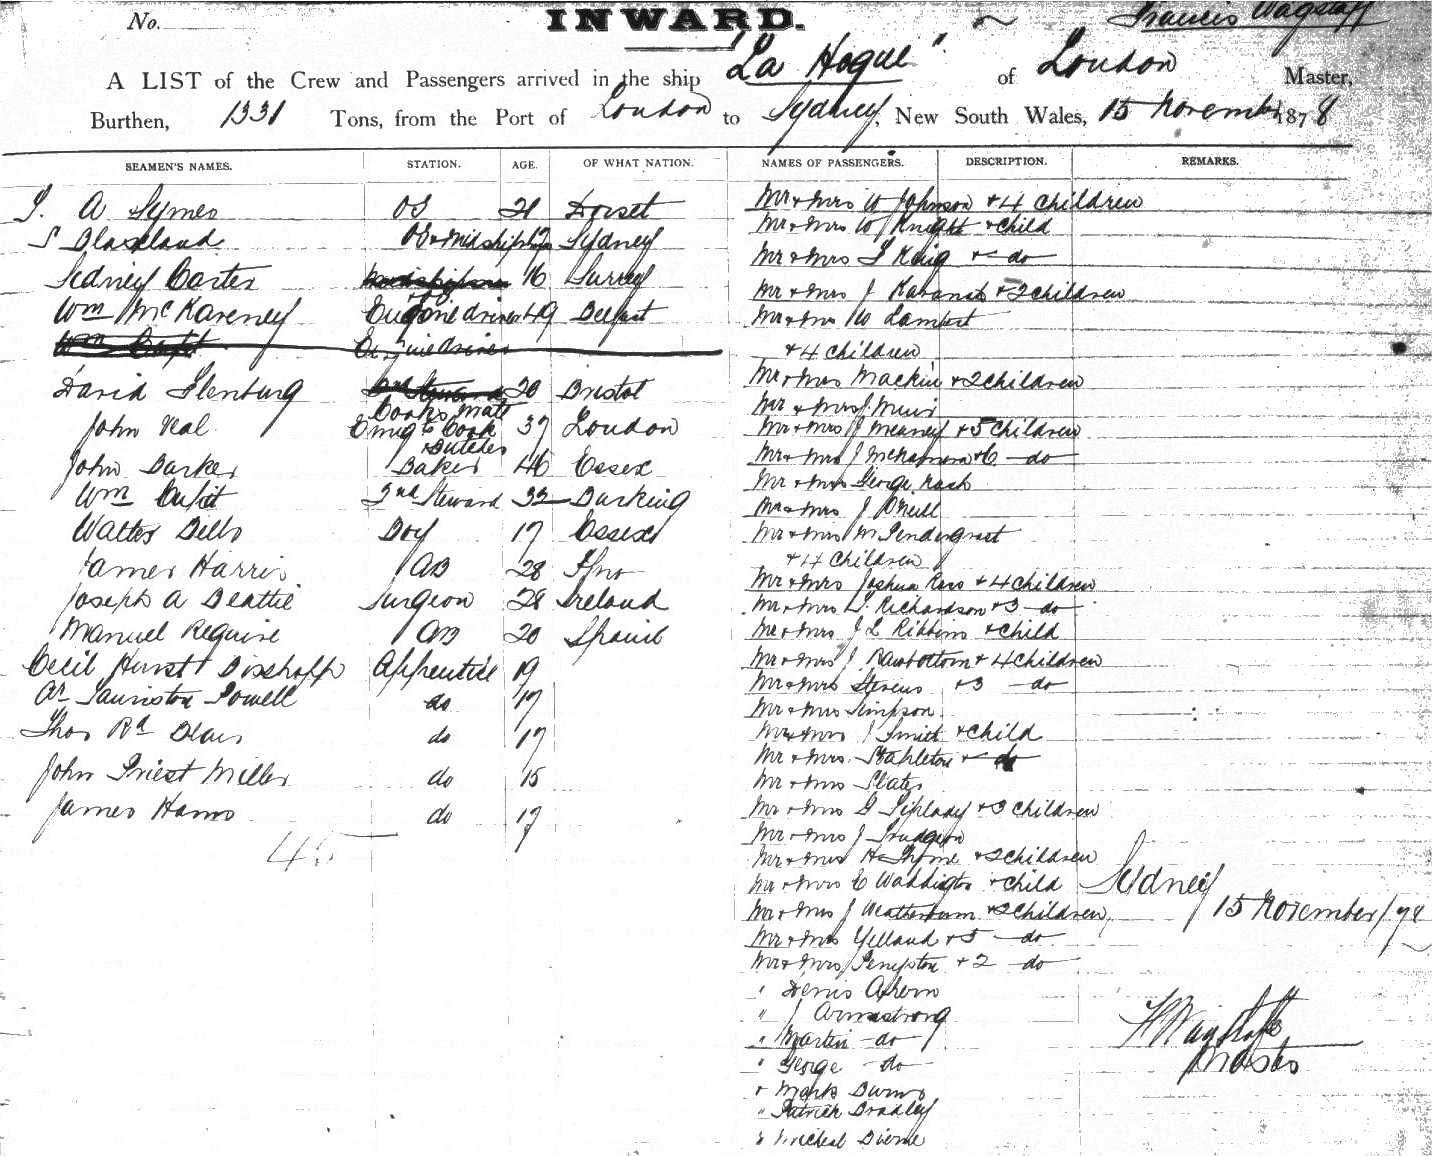 No.
INWARD.
Francis Wagstaff
A LIST of the Crew and Passengers arrived in the ship "La Hogue" of London Master,
Burthen, 1331 Tons, from the Port of London to Sydney, New South Wales, 15 November 1878
SEAMEN'S NAMES. STATION. AGE. OF WHAT NATION. NAMES OF PASSENGERS. DESCRIPTION. REMARKS.
A Symes OS 21 Dorset
S Blaxland OS & Midshipman 17 Sydney
Sidney Carter 16 Surrey
Wm McKareney Engine driver 49 Belfast
Engine driver
David Bristol
Cooks Mate
John Neal Emigts Cook 37 London
Butcher
John Barker Baker 46 Essex
Wm Cufit 2nd Steward 32 Barking
Walter Bells Boy 17 Essex
James Harris AB 28
Joseph A Beattie Surgeon 28 Ireland
Manuel Require AB 20 Spain
Cecil Hurst Apprentice 19
Ar Lauriston Powell do 17
Thos Rd Blair do 17
John Priest Miller do 15
James Hams do 17
45
Mr & Mrs W Johnson & 4 Children
Mr & Mrs W Knight & Child
Mr & Mrs J King & - do -
Mr & Mrs J Kavanah & 2 Children
Mr & Mrs W Lambert
& 4 Children
Mr & Mrs Mackin & 2 Children
Mr & Mrs J. Muir
Mr & Mrs J Meaney & 5 Children
Mr & Mrs J McNamara & C - do -
Mr & Mrs George Nash
Mr & Mrs J O'Neill
Mr & Mrs M Pendergrast
& 4 Children
Mr & Mrs Joshua Ross & 4 Children
Mr & Mrs D. Richardson & 3 - do -
Mr & Mrs J L Ribbens & Child
Mr & Mrs J Rawbottom & 4 Children
Mr & Mrs Stevens & 3 - do
Mr & Mrs Simpson
Mr & Mrs J Smith & Child
Mr & Mrs Stapleton & - do
Mr & Mrs Slater
Mr & Mrs G Siplady & 3 Children
Mr & Mrs J Trudgeon
Mr & Mrs H Thorne & 2 Children
Mr & Mrs E Waddington & Child
Mr & Mrs J Weatherburn & 2 Children
Mr & Mrs Yelland & 5 - do -
Mr & Mrs Pempston & 2 - do -
" Denis Ahern
" J Armstrong
" Martin - do -
" George - do -
" Mark Burns
" Patrick Bradley
" Micheal Birne
Sydney
15 November/78
F Wagstaffe
Master